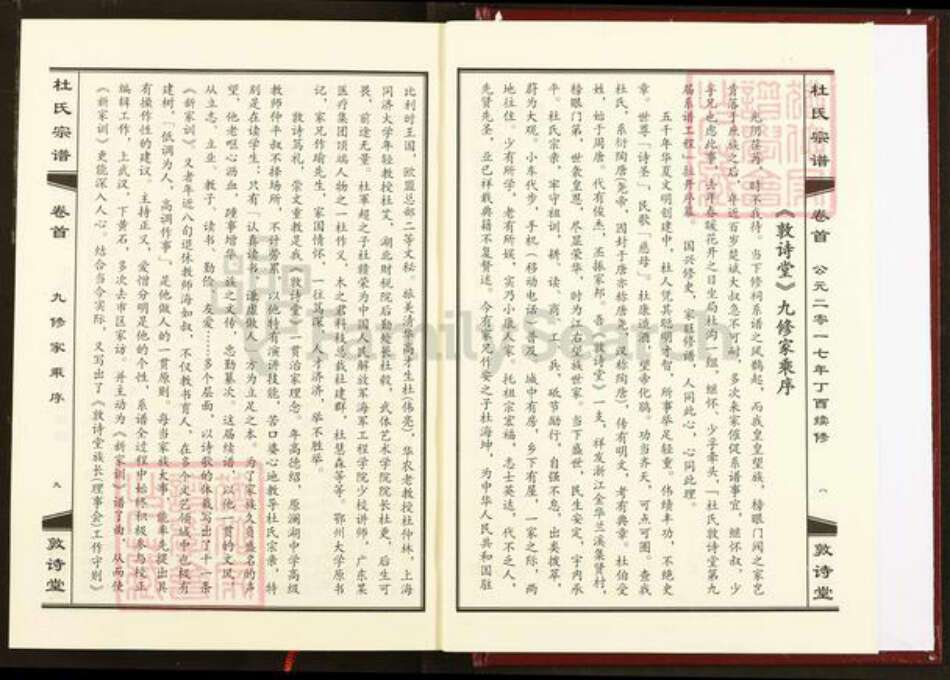 杜氏宗谱
卷首
公元二零一七年丁酉续修
敦诗堂
《敦诗堂》九修家乘序
光阴荏苒，时不我待。当下修祠系谱之风鹊起，而我皇皇望族、榜眼门阀之家岂
肯落于庶族之后，年近百岁楚斌大叔急不可耐，多次来家催促系谱事宜。继怀叔、少
喜兄也虑此事，去年春暖花开之日坐局杜沟二组，继怀、少子牵头，「杜氏敦诗堂第九
届系谱工程」拉开序幕。国兴修史，家旺修谱，人同此心，心同此理。
五千年华夏文明创建中，杜人凭其聪明才智，所事举足轻重。伟绩丰功，不绝史
章。世尊「诗圣」，民歌「慈母」，杜康造酒，望帝化鹃。功当齐天，可点可圈。查我
杜氏，系衍陶唐(尧帝，因封于唐亦称唐尧，汉称陶唐)，传有明文，考有典章。杜伯受
姓，始于周唐。代有俊杰，丕振家邦。吾《敦诗堂》一支，祥发浙江金华兰溪集贤村，
榜眼门第，世袭皇恩，尽显荣华，时为江右望族世家。当下盛世，民生安定，宇内承
平。杜氏宗亲，牢守祖训，耕、读、商、工、兵，砥节励行，自强不息，出类拔萃，
蔚为大观。小车代步，手机（移动电话）普及，城中有房，乡下有屋，一家之际，两
地往住。少有所学，老有所娱，实乃小康人家。托祖宗宏福，志士英达，代不乏人，
先贤先圣，业已祥载典籍不复赘述。今有家兄作安之子杜海坤，为中华人民共和国驻
比利时王国，欧盟总部二等文秘。旅美清华高才生杜(伟亮)，华农老教授杜仲林，上海
同济大学年轻教授杜艾，湖北财税院后勤处长杜毅，武体艺术学院院长杜更，后生可
畏，前途无量。杜军超之子杜赣荣为中国人民解放军海军工程学院少校讲师，广东某
医疗集团顶端人物之一杜作义，木之君科技总裁杜建群，杜慧森等等。鄂州大学原书
记，家兄作瑜先生，家国情怀，一往笃深。人才济济，举不胜举。
敦诗笃礼，崇文重教是我《敦诗堂》一贯治家理念。年高德绍，原澜湖中学高级
教师仲平叔不择场所，不计劳累，以他特有演讲技能，苦口婆心地教导杜氏宗亲，特
别是在读学生：只有「认真读书，谦虚做人」方为立足之本。为了家族久负盛名的声
望，他老呕心沥血，踵事增华，族之文传，悉勤纂次。这届续谱，以他一贯的文风，
从立志、立业、教子、读书、勤俭、友爱……多个层面，以诗歌的体裁写出了十一条
《新家训》。又老年近八旬退休教师海如叔，不仅教书育人，在多个文艺领域中也极有
建树。「低调为人，高调作事」，是他做人的一贯原则。每当家族大事，能率先提出具
有操作性的建议。主持正义，爱憎分明是他的个性，系谱全过程中始终积极参与校正
编辑工作，上武汉，下黄石，多次去市区家访，并主动为《新家训》谱了曲，从而使
《新家训》更能深入人心。结合当今实际，又写出了《敦诗堂族长(理事会)工作守则》
杜氏宗谱
卷首
九修家乘序
九
敦诗堂
FamilySearch